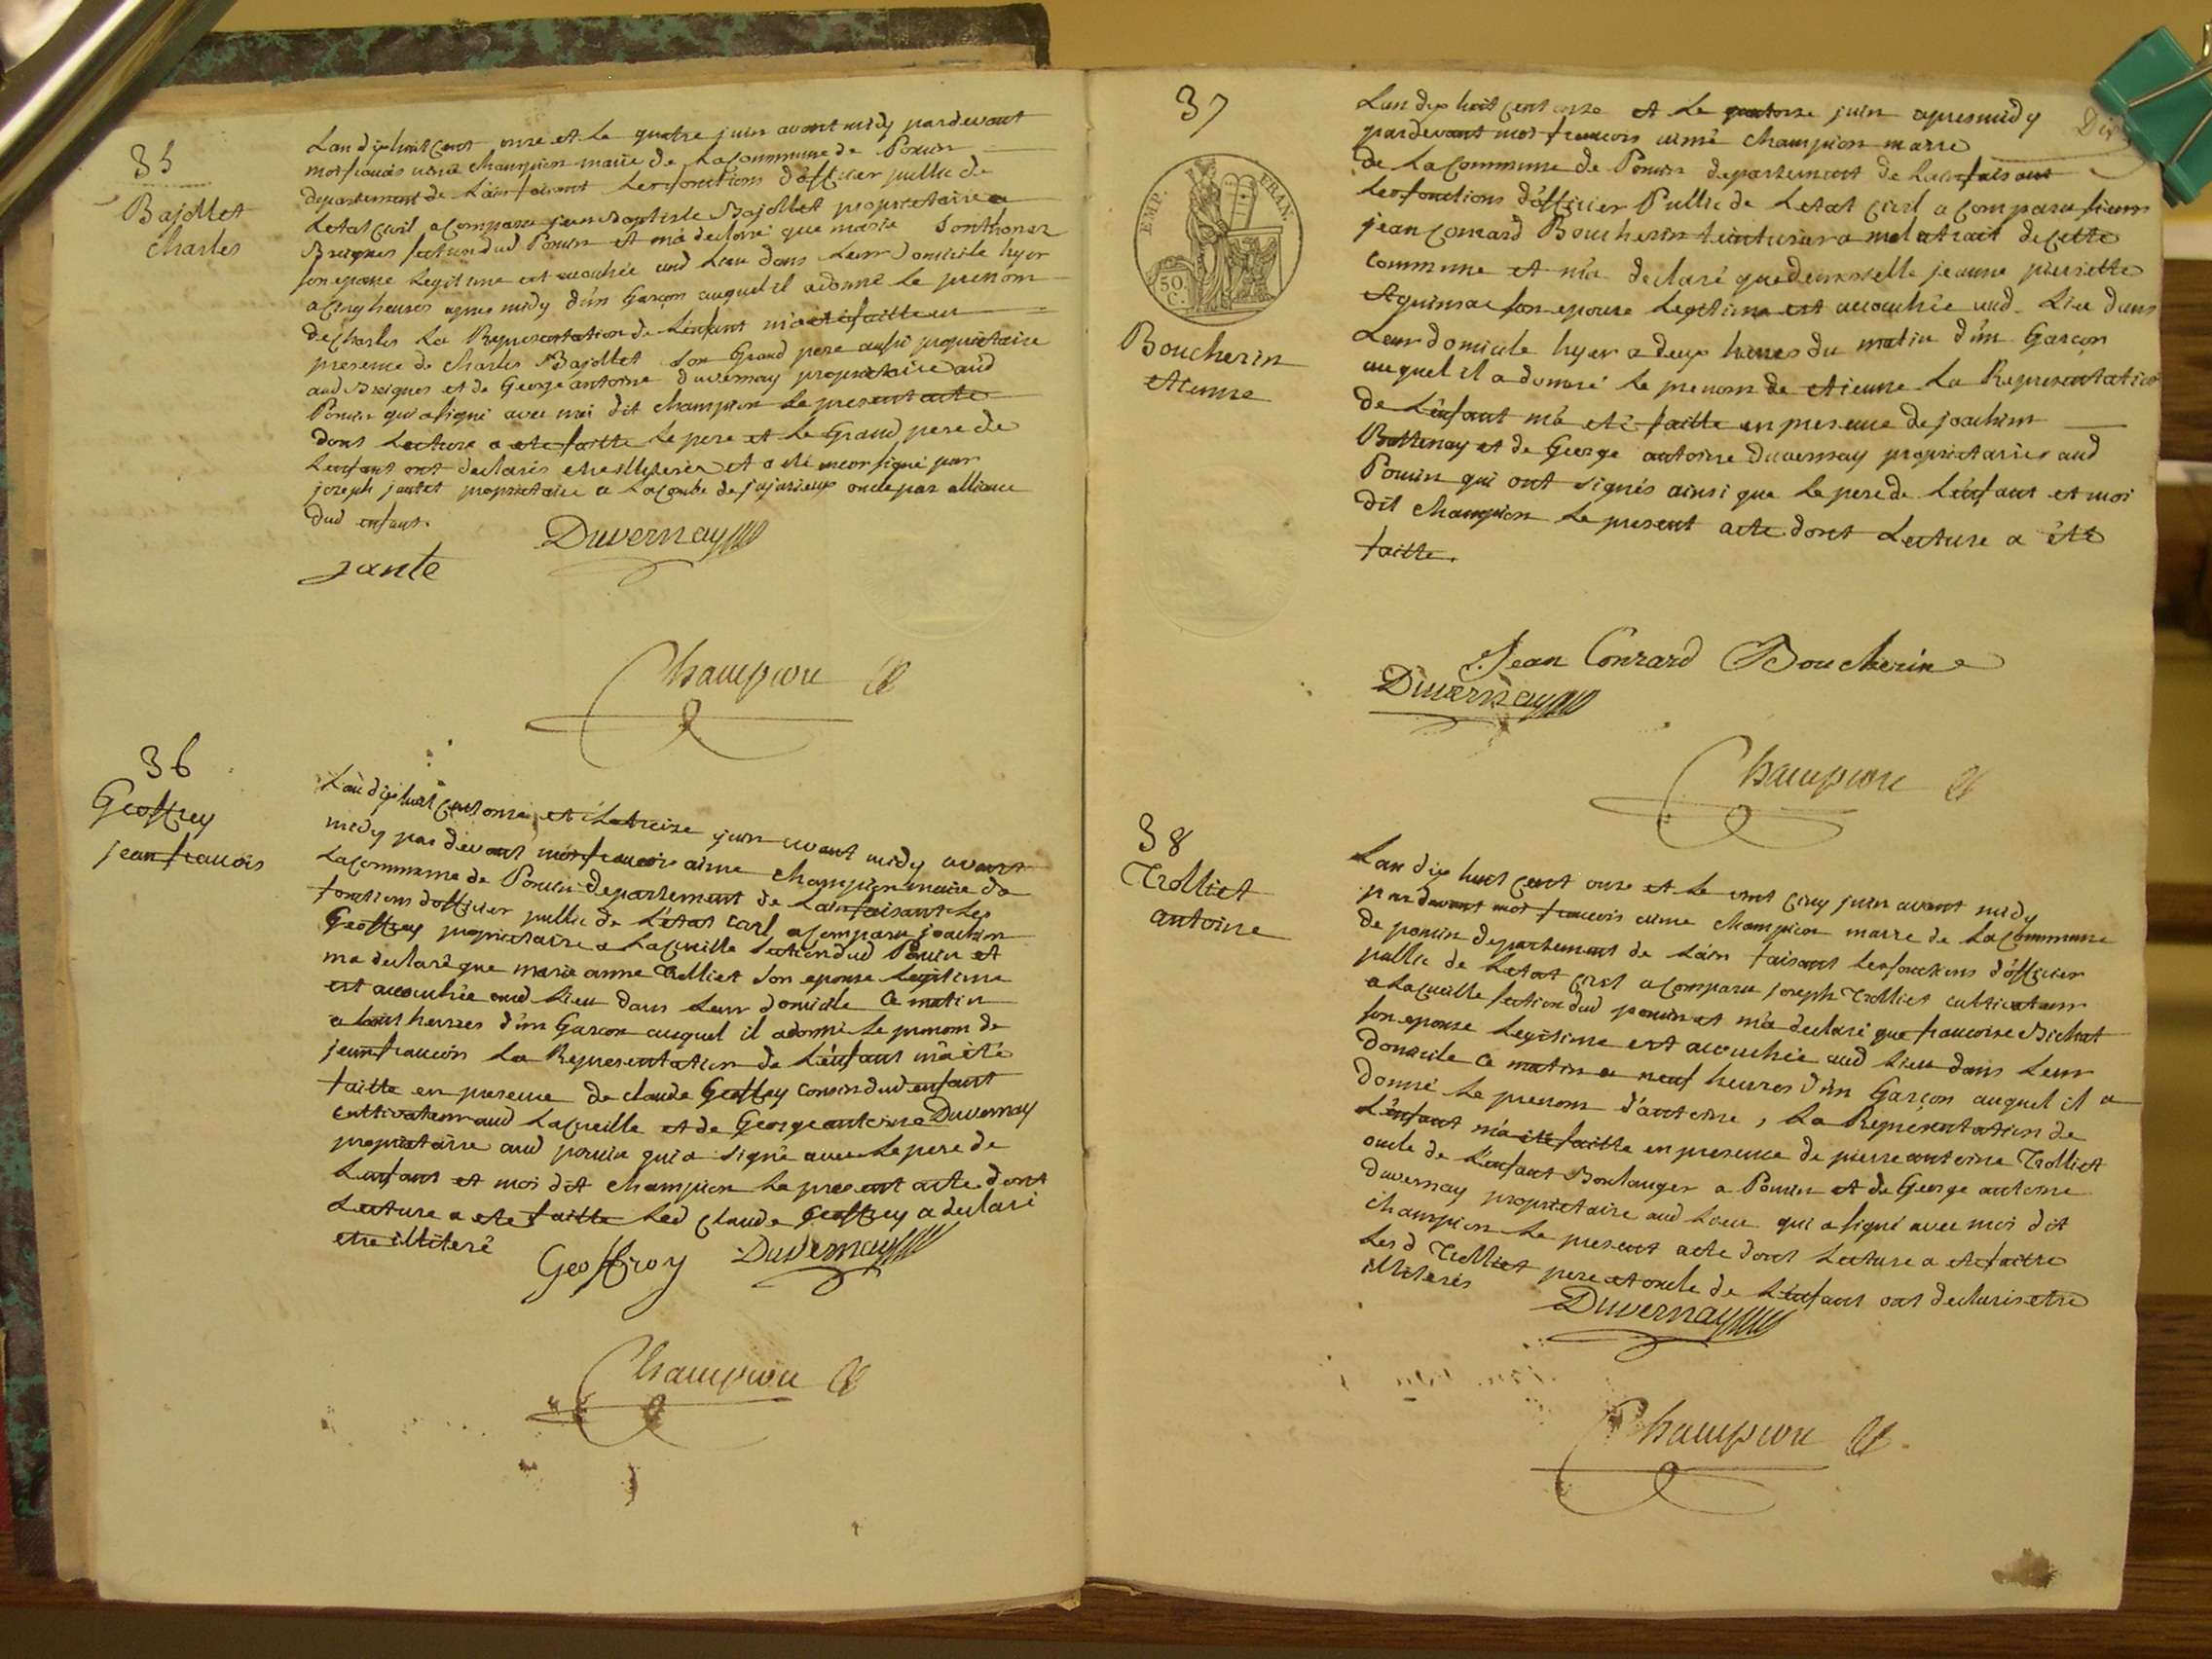 35
Bajollet
Charles
Lan dix huit cent onze et le quatre juin avant midy pardevant
moi francois aimé champion maire de la commune de Poncin
departement de Lain faisant les fonctions d'officier public de
Letat civil a comparu jean Baptiste Bajollet proprietaire a
Breignes section dud Poncin et m'a declaré que marie Sonthonax
son epouse Legitime est acouchée aud Lieu dans Leur Domicile hyer
a cinq heures apres midy d'un Garçon auquel il a donné Le prenom
de Charles La Representation de L'enfant m'a eté faitte en
presence de Charles Bajollet son Grand pere aussi proprietaire
aud Breignes et de George antoine duvernay proprietaire aud
Poncin qui a signé avec moi dit champion Le present acte
dont Lecture a ete faitte Le pere et Le Grand pere de
Lenfant ont declarés etre illiterés et a eté encor signé par
joseph jantet proprietaire a La Combe de jujurieux oncle par alliance
dud enfant.
Duvernay
jante
Champion
36
Geoffrey
jean francois
Lan dix huit cent onze et Le treize juin avant midy avant
midy par devant moi francois aime champion maire de
La Commune de Poncin departement de Lain faisant Les
fonctions d'officier public de L'état Civil a comparu joachim
Geoffrey proprietaire a Lacueille section dud Poncin et
ma declaré que marie anne Trolliet son epouse Legitime
est acouchée aud Lieu dans Leur domicile ce matin
a huit heures d'un Garcon auquel il a donné Le prenom de
jean francois La Representation de L'enfant m'a été
faitte en presence de claude Geoffrey cousin dud enfant
cultivateur aud Lacueille et de George antoine Duvernay
proprietaire aud poncin qui a signé avec Le pere de
Lenfant et moi dit champion Le present acte dont
Lecture a ete faitte Led Claude Geoffrey a declaré
etre illiteré
Geoffroy Duvernay
Champion
37
EMP. FRAN.
50 C.
Boucherin
Etienne
Lan dix huit cent onze et Le quatorze juin apres midy
pardevant moi francois aimé champion maire
de La Commune de Poncin departement de Lain faisant
Les fonctions d'officier Public de Letat Civil a comparu sieur
jean Conrard Boucherin teinturier a de cette
Commune et m'a declaré que demoiselle jeanne pierrette
son epouse Legitime est acouchée aud Lieu dans
Leur domicile hyer a deux heures du matin d'un Garçon
auquel il a donné Le prenom de etienne La Representation
de L'enfant m'a eté faitte en presence de joachim
Bottenay et de George antoine Duvernay proprietaires aud
Poncin qui ont signés ainsi que Le pere de L'enfant et moi
dit Champion Le present acte dont Lecture a été
faitte.
Jean Conrard Boucherin
Duvernay
Champion
38
Trolliet
antoine
Lan dix huit cent onze et Le vint cinq juin avant midy
par devant moi francois aime champion maire de La Commune
de poncin departement de Lain faisant Les fonctions d'officier
public de Letat Civil a comparu joseph Trolliet cultivateur
a Lacueille section dud poncin et m'a declaré que francoise Bichat
son epouse Legitime est acouchée aud Lieu dans Leur
domicile ce matin a neuf heures d'un Garçon auquel il a
donné Le prenom d'antoine, La Representation de
L'enfant m'a eté faitte en presence de pierre antoine Trolliet
oncle de L'enfant Boulanger a Poncin et de George antoine
duvernay proprietaire aud Lieu qui a signé avec moi dit
champion Le present acte dont Lecture a ete faitte
Les d Trolliet pere et oncle de L'enfant ont declarés etre
illiterés
Duvernay
Champion